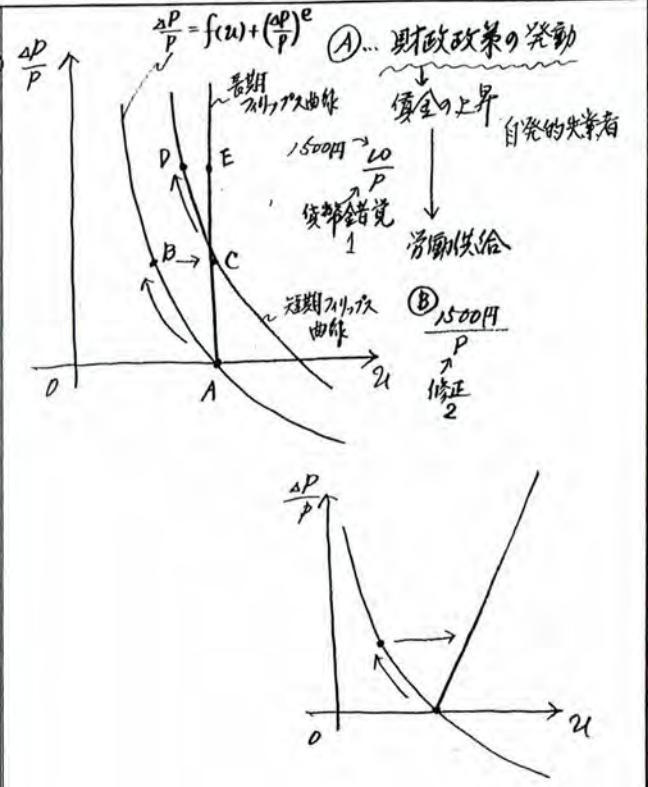 ΔP/P = f(u) + (ΔP/P)^e
ΔP/P
長期
フィリップス曲線
D
E
B
C
短期フィリップス
曲線
O
A
u
Ⓐ… 財政政策の発動
賃金の上昇
自発的失業者
1500円
ω/P
貨幣錯覚
1
労働供給
Ⓑ
1500円/P
修正
2
ΔP/P
O
u